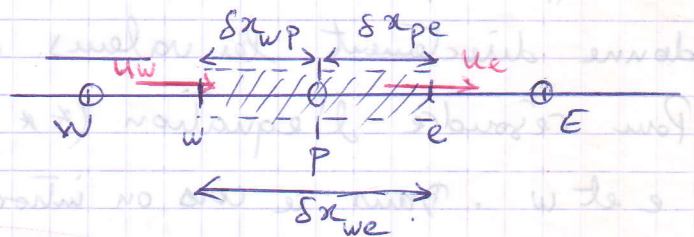 δx_wp δx_pe
u_w u_e
W w P e E
δx_we